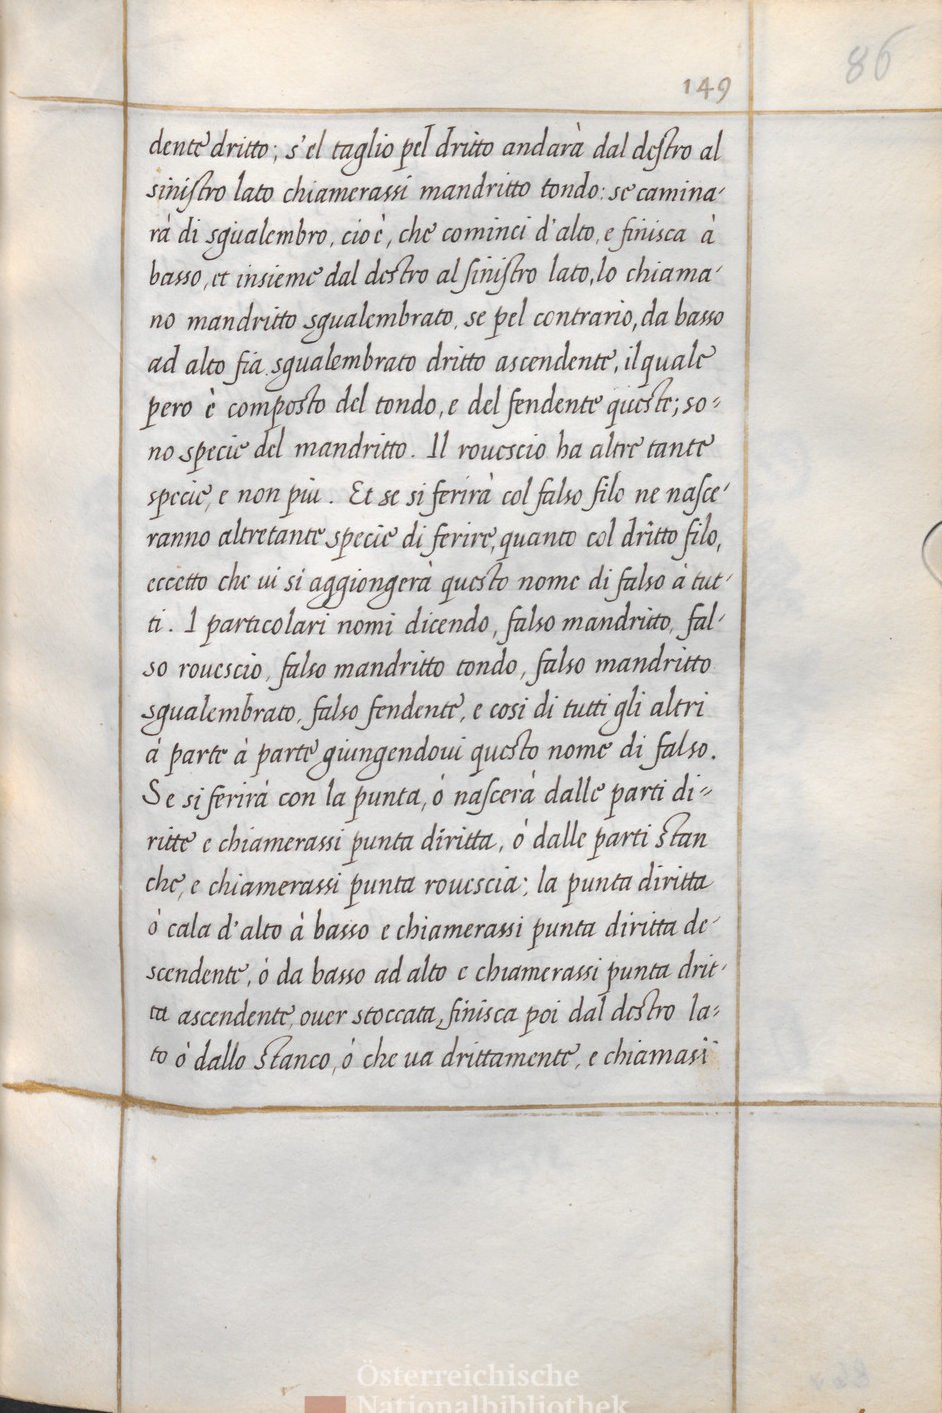 86
149
dente dritto; s'el taglio pel dritto andarà dal destro al
sinistro lato chiamerassi mandritto tondo: se camina-
rà di sgualembro, cioè, che cominci d'alto, e finisca à
basso, et insieme dal destro al sinistro lato, lo chiama-
no mandritto sgualembrato, se pel contrario, da basso
ad alto fia sgualembrato dritto ascendente, il quale
pero è composto del tondo, e del fendente queste; so-
no specie del mandritto. Il rouescio ha altre tante
specie, e non piu. Et se si ferirà col falso filo ne nasce-
ranno altretante specie di ferire, quanto col dritto filo,
eccetto che ui si aggiongerà questo nome di falso à tut-
ti. I particolari nomi dicendo, falso mandritto, fal-
so rouescio, falso mandritto tondo, falso mandritto
sgualembrato, falso fendente, e cosi di tutti gli altri
à parte à parte giungendoui questo nome di falso.
Se si ferirà con la punta, ò nascerà dalle parti di-
ritte e chiamerassi punta diritta, ò dalle parti stan
che, e chiamerassi punta rouescia; la punta diritta
ò cala d'alto à basso e chiamerassi punta diritta de-
scendente, ò da basso ad alto e chiamerassi punta drit-
ta ascendente, ouer stoccata, finisca poi dal destro la-
to ò dallo stanco, ò che ua drittamente, e chiamasi
Österreichische
Nationalbibliothek